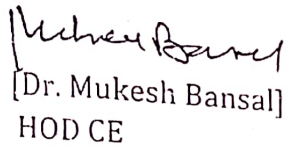 Mukesh Bansal
[Dr. Mukesh Bansal]
HOD CE